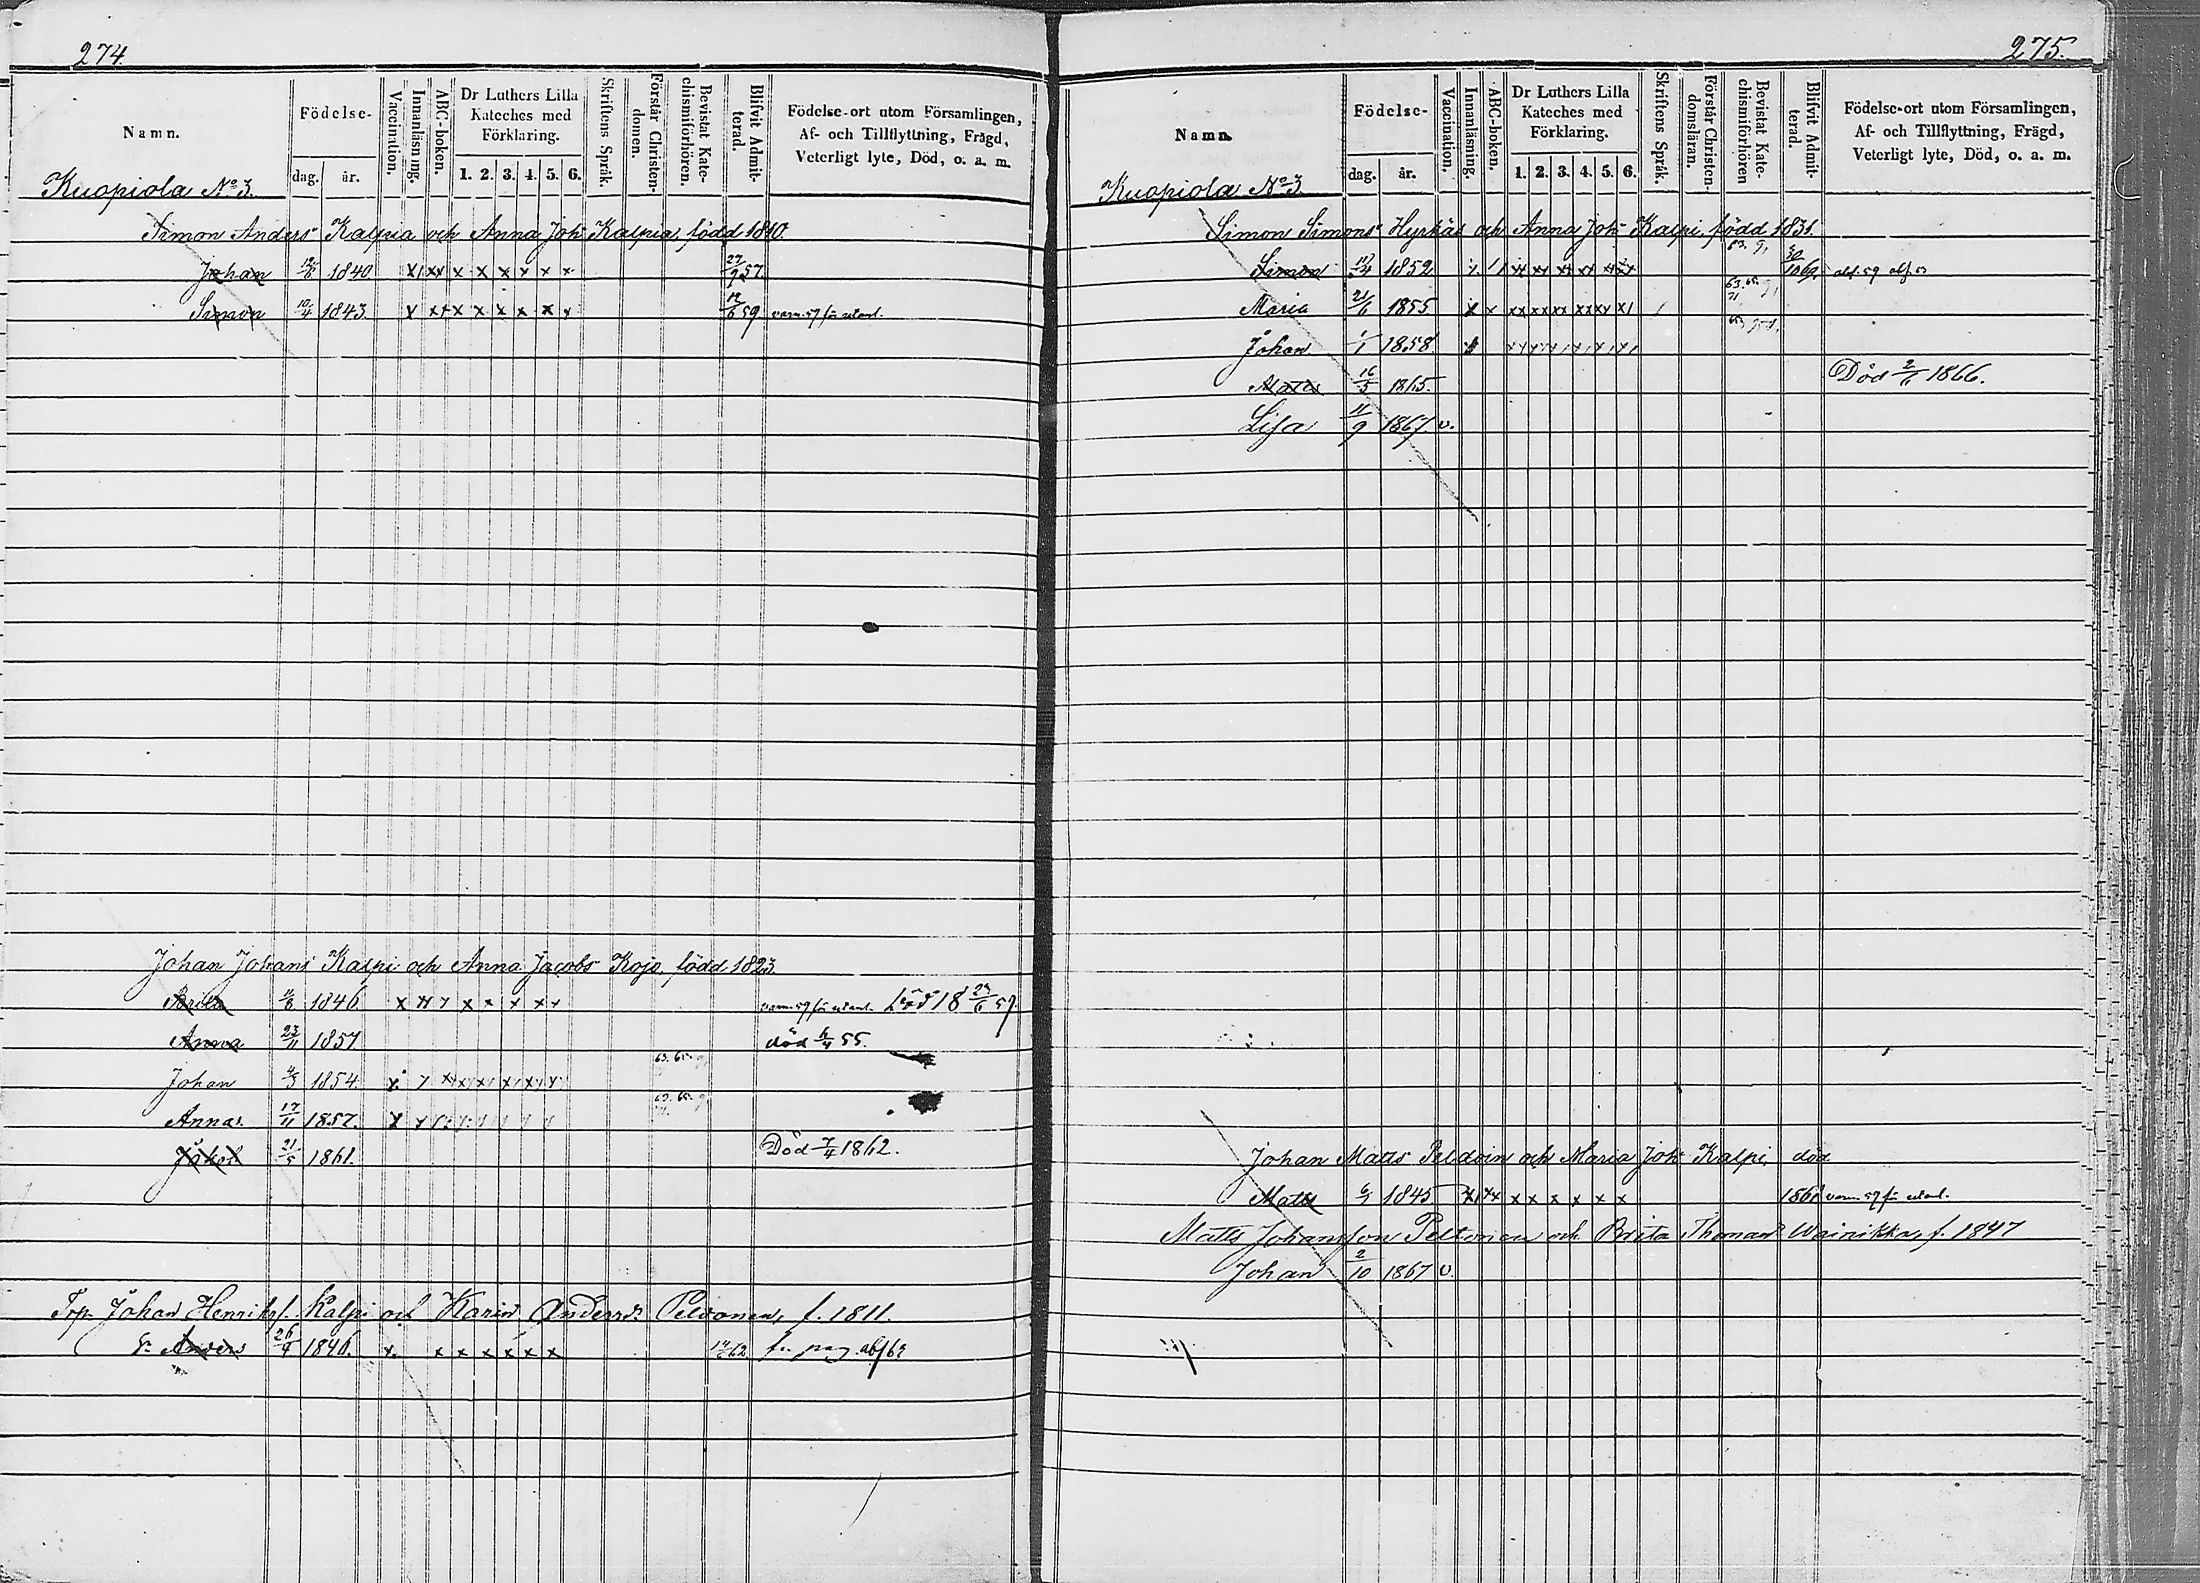 274.
Namn. Födelse- dag. år. Vaccination. Innanläsning. ABC-boken. Dr Luthers Lilla Kateches med Förklaring. 1. 2. 3. 4. 5. 6. Skriftens Språk. Förstår Christendomen. Bevistat Katechismiförhören. Blifvit Admitterad. Födelse-ort utom Församlingen, Af- och Tillflyttning, Frägd, Veterligt lyte, Död, o. a. m.
Kuopiola No 3.
Simon Anders Kalpia och Anna Joh Kalpia, född 1810.
Johan 1840 x x x x x x 27/9 57.
Simon 10/4 1843. x x x x x x 12/6 59. 
Johan Johans Kalpi och Anna Jacobs Kojo, född 1823.
Brita 1846. x x x x x 18 29/6 59.
Anna 23/11 1857. död 6/4 55.
Johan 1854. 63. 65.
Anna. 17/11 1857. 63. 65.
Jakob 21/5 1861. Död 7/4 1862.
Johan Henriksf. Kalpi och Karin Andersdr Pelvonen, f. 1811.
Anders 26/4 1840. x. x x x x x x 62
275.
Namn. Födelse- dag. år. Vaccination. Innanläsning. ABC-boken. Dr Luthers Lilla Kateches med Förklaring. 1. 2. 3. 4. 5. 6. Skriftens Språk. Förstår Christendomsläran. Bevistat Katechismiförhören Blifvit Admitterad. Födelse-ort utom Församlingen, Af- och Tillflyttning, Frägd, Veterligt lyte, Död, o. a. m.
Kuopiola No 3.
Simon Simons Hyrkäs och Anna Joh Kalpi, född 1831.
Simon 1852 30/10 69.
Maria 21/6 1855. 63. 65.
Johan 1/1 1858.
Matts 16/5 1865. Död 2/6 1866.
Lisa 11/9 1867 v.
Johan Matts Peldoin och Maria Joh Kalpi, död
Matts 1845 x x x x x x
Matts Johansson Peltonen och Brita Thomasdr Wainikka, f. 1847
Johan 2/10 1867 v.